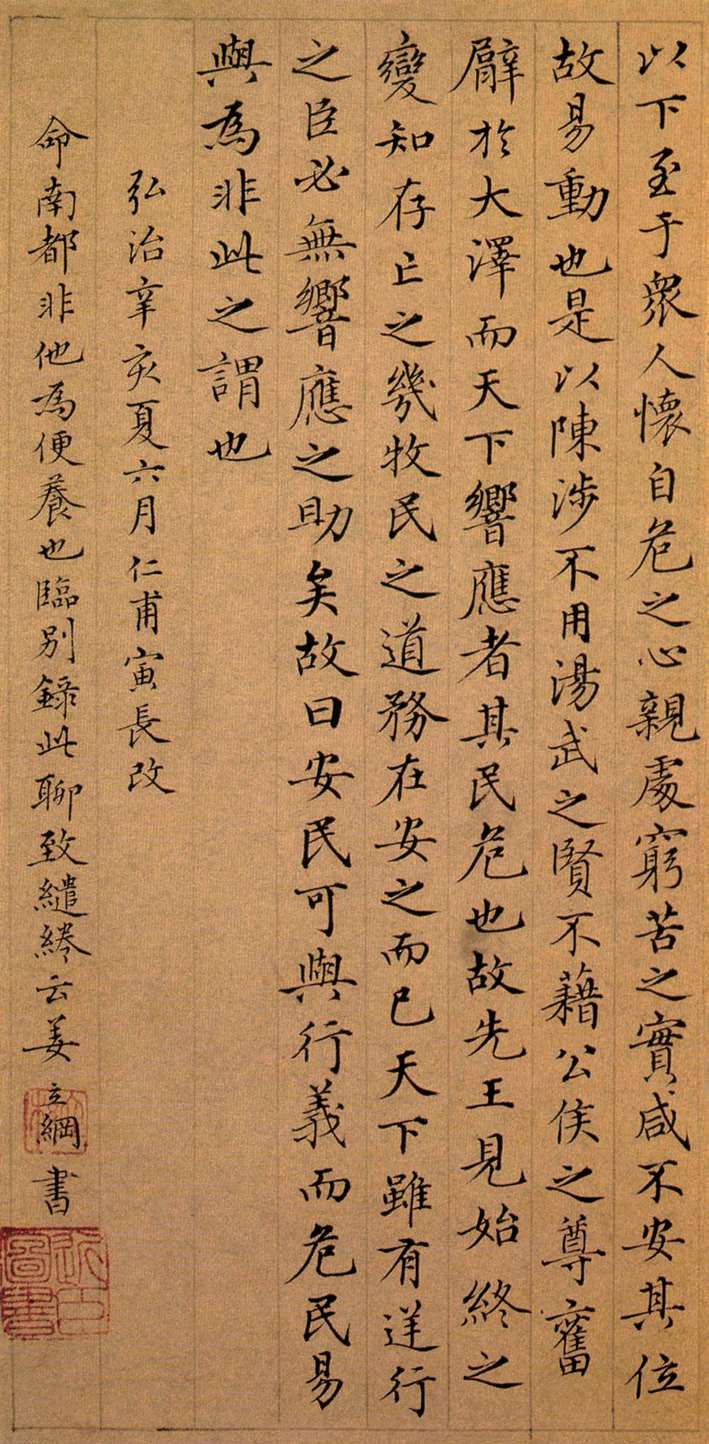 以下至于衆人懷自危之心親處窮苦之實咸不安其位
故易動也是以陳涉不用湯武之賢不藉公侯之尊奮
臂於大澤而天下響應者其民危也故先王見始終之
變知存亡之幾牧民之道務在安之而已天下雖有逆行
之臣必無響應之助矣故曰安民可與行義而危民易
與為非此之謂也
弘治辛亥夏六月仁甫寅長改
命南都非他為便養也臨別錄此聊致繾綣云姜立綱書